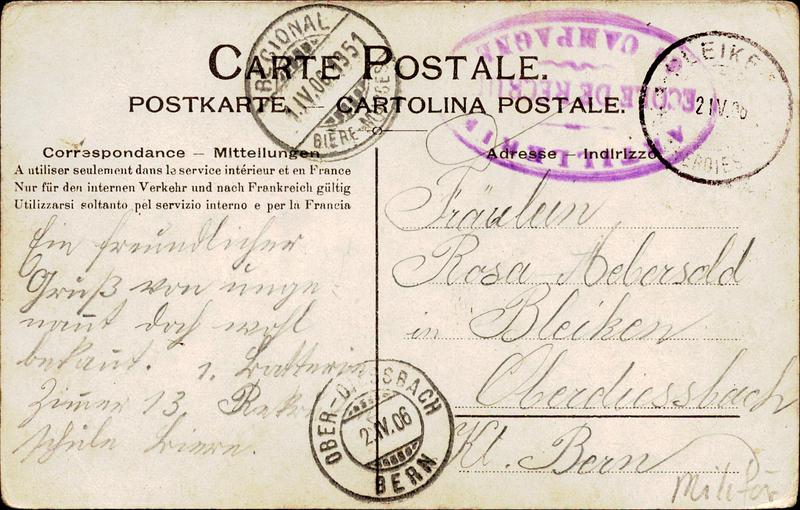 CARTE POSTALE.
POSTKARTE. — CARTOLINA POSTALE.
Correspondance — Mitteilungen
A utiliser seulement dans le service intérieur et en France
Nur für den internen Verkehr und nach Frankreich gültig
Utilizzarsi soltanto pel servizio interno e per la Francia
Ein freundlicher
Gruß von unge-
nannt doch wohl
bekannt. 1. Batterie
Zimmer 13. Rekr
schule Biere.
Adresse — Indirizzo
Fräulein
Rosa Aebersold
in Bleiken
Oberdiessbach
Kt. Bern
Militär
REGIONAL
1.IV.06 1951
BIÈRE-MORGES
CAMPAGNE
ECOLE DE RECRUE
BLEIKEN
2 IV. 06
OBER-DIESSBACH
2.IV.06
BERN